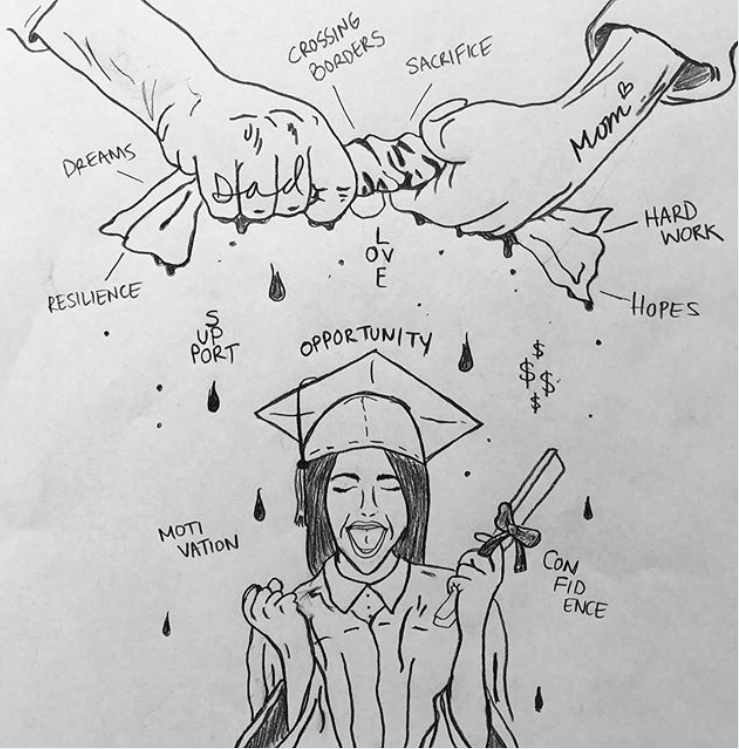 CROSSING
BORDERS
SACRIFICE
Mom
DREAMS
Dad
HARD
WORK
L
OV
E
RESILIENCE
HOPES
S
UP
PORT
OPPORTUNITY
$
$ $
$
MOTI
VATION
CON
FID
ENCE